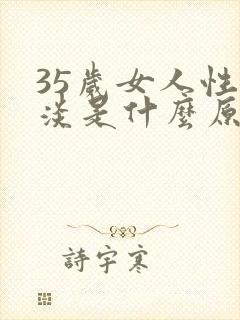 35歲女人性
淡是什麼原
詩宇寒